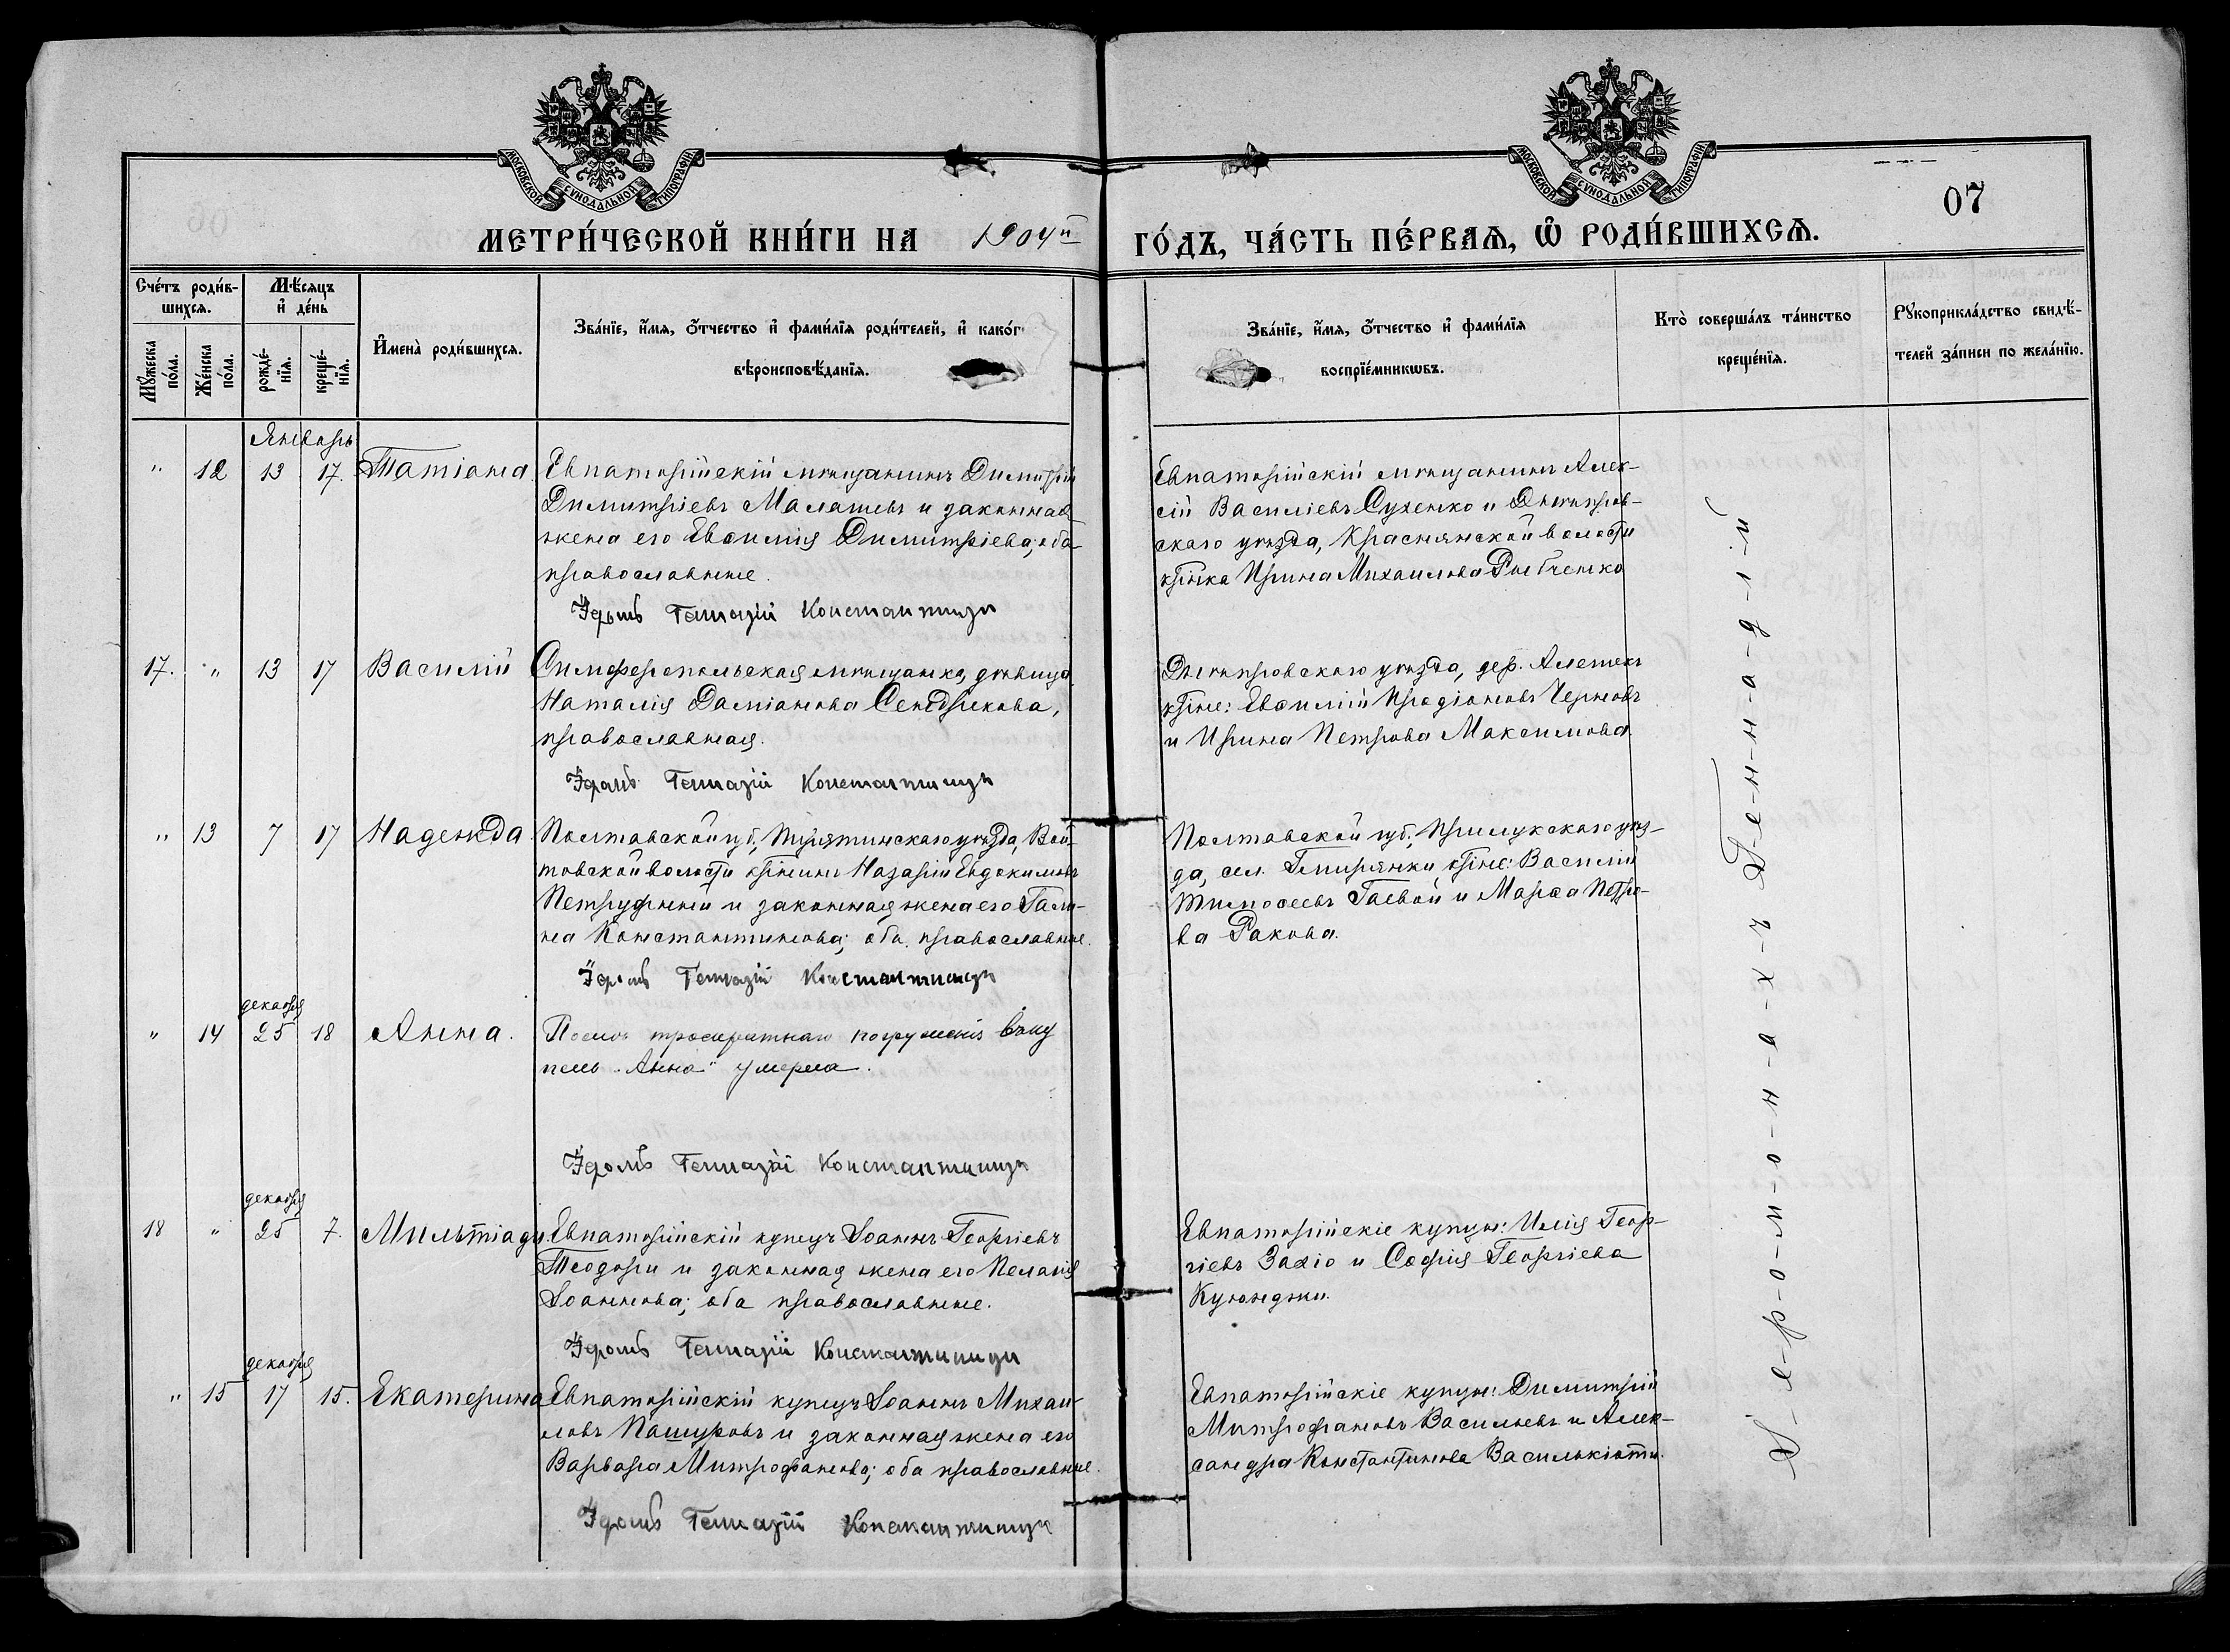 МОСКОВСКОЙ СѴНОДАЛЬНОЙ ТИПОГРАФІИ
МОСКОВСКОЙ СѴНОДАЛЬНОЙ ТИПОГРАФІИ
07
МЕТРИ́ЧЕСКОЙ КНИ́ГИ НА 1904й ГО́ДЪ, ЧА́СТЬ ПЕ́РВАѦ, Ѽ РОДИ́ВШИХСѦ.
Сче́тъ роди́в-
шихсѧ.
Мѣ́сяцъ
и҆ де́нь
Мꙋ́жеска
по́ла.
Же́нска
по́ла.
рожде́-
нїѧ.
креще́-
нїѧ.
И҆мена̀ роди́вшихсѧ.
Зва́нїе, и҆́мѧ, ѻ҆́тчество и҆ фами́лїѧ роди́телей, и҆ како́г
вѣроисповѣ́данїѧ.
Зва́нїе, и҆́мѧ, ѻ҆́тчество и҆ фами́лїѧ
воспрїе́мникѡвъ.
Кто̀ соверша́лъ та́инство
креще́нїѧ.
Рꙋкоприкла́дство свидѣ́-
телей за́писи по жела́нїю.
Январь
" 12 13 17. Татіана
Евпаторійскій мѣщанинъ Димитрій
Димитріевъ Малашевъ и законная
жена его Евѳимія Димитріева; оба
православные.
Іером. Геннадій Константиниди
Евпаторійскій мѣщанинъ Алек-
сій Василіевъ Сухенко и Днѣпров-
скаго уѣзда, Краснянской волости
кр-нка Ирина Михаилова Рыбченко
17. " 13 17 Василій
Симферопольская мѣщанка, дѣвица
Наталія Даміанова Сендрикова,
православная.
Іером. Геннадій Константиниди
Днѣпровскаго уѣзда, дер. Алешекъ
кр-не: Евѳимій Иродіоновъ Черновъ
и Ирина Петрова Максимова
" 13 7 17 Надежда
Полтавской губ., Пирятинскаго уѣзда, Вой-
товской волости кр-нинъ Назарій Евдокимовъ
Петруфный и законная жена его Гали-
на Константинова; оба православные.
Іером. Геннадій Константиниди
Полтавской губ., Прилукскаго уѣз-
да, сел. Гмирянки, кр-не: Василій
Тимоѳеевъ Гаевой и Марѳа Петро-
ва Ракова.
декабря
" 14 25 18 Анна.
Послѣ троекратнаго погруженія въ ку
пель "Анна" умерла.
Іером. Геннадій Константиниди
декабря
18 " 25 7. Мильтіадъ
Евпаторійскій купецъ Іоаннъ Георгіевъ
Теодори и законная жена его Пелагія
Іоаннова; оба православные.
Іером. Геннадій Константиниди
Евпаторійскіе купцы: Илія Геор-
гіевъ Захіо и Софія Георгіева
Куюмджи.
декабря
" 15 17 15. Екатерина
Евпаторійскій купецъ Іоаннъ Михаи-
ловъ Пашуровъ и законная жена его
Варвара Митрофанова; оба православные.
Іером. Геннадій Константиниди
Евпаторійскіе купцы: Димитрій
Митрофановъ Васильевъ и Алек-
сандра Константинова Василькіоти.
І-е-р-о-м-о-н-а-х-ъ Г-е-н-н-а-д-і-й